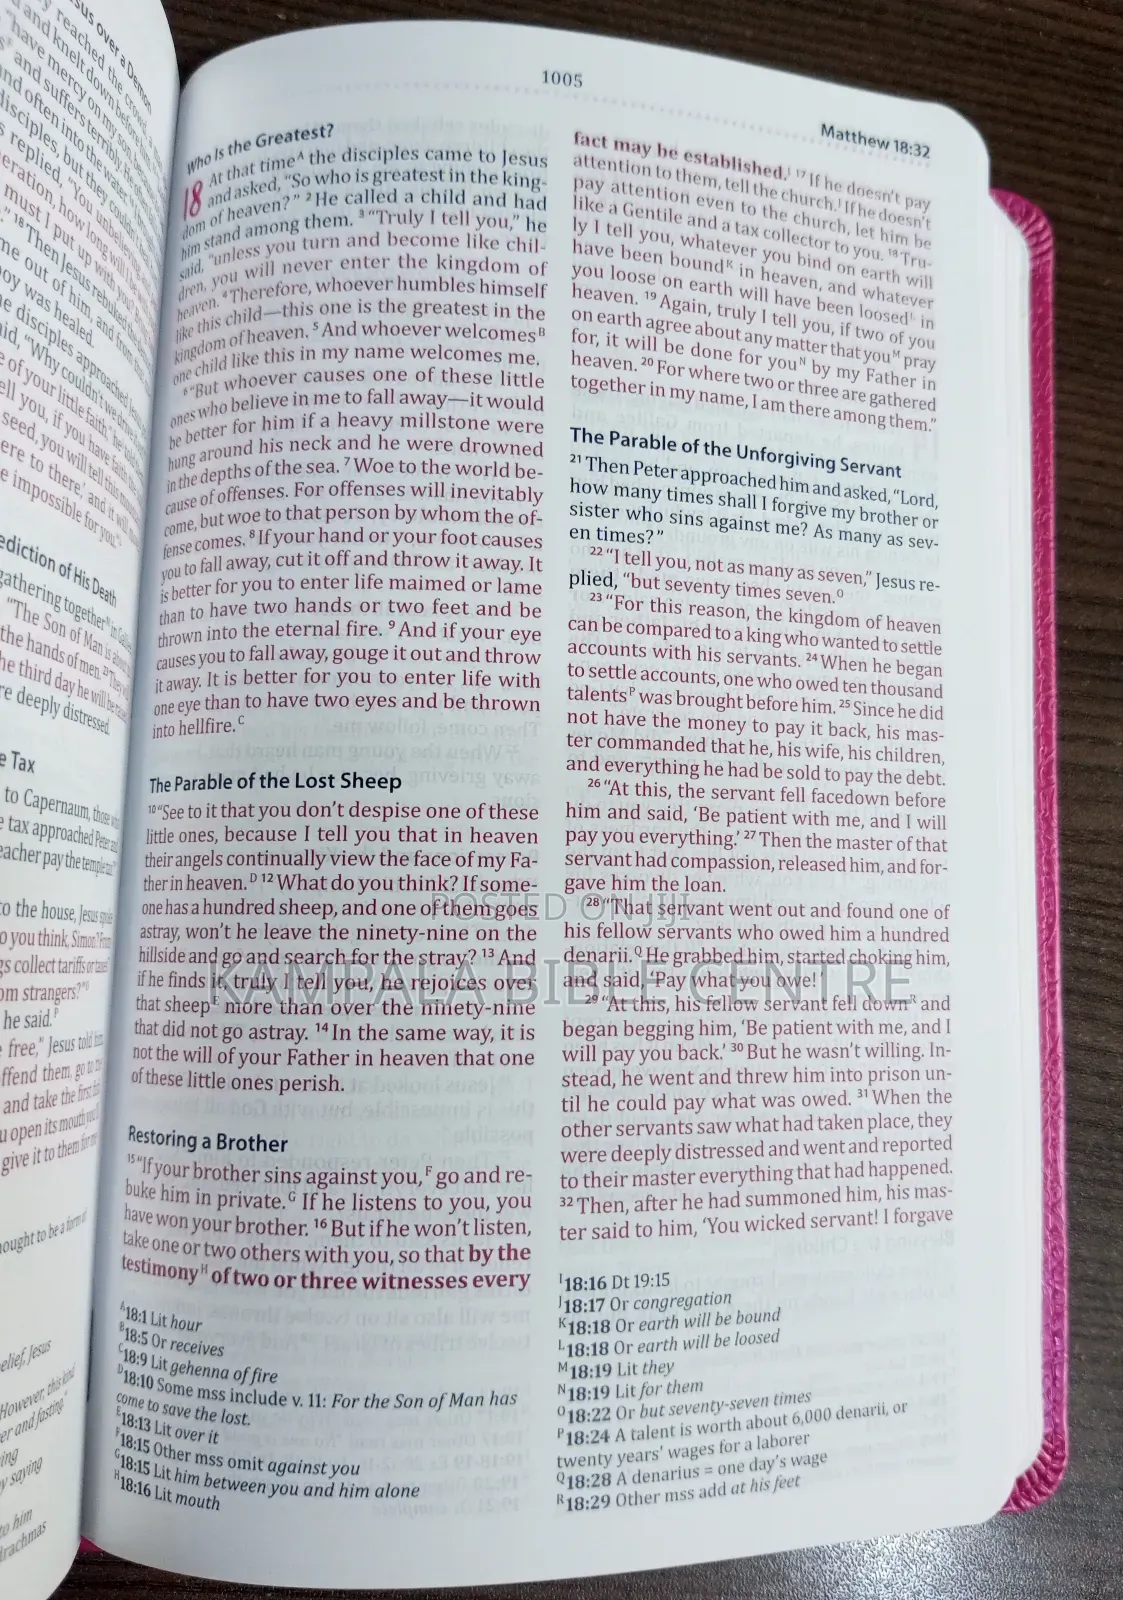 sus over a Demon
reached the crowd, a
and knelt down before him
"have mercy on my son, because
and suffers terribly. He of
nd often into the water.
disciples, but they couldn't
replied, "You unbelieving
eration, how long will I be
must I put up with you?
18 Then Jesus rebuked the
me out of him, and from that
oy was healed.
e disciples approached Jesus
aid, "Why couldn't we drive
e of your little faith," he told
ell you, if you have faith
seed, you will tell this mountain
ere to there,' and it will
e impossible for you."
ediction of His Death
gathering together in Galilee,
"The Son of Man is about
the hands of men. 23 They
he third day he will be raised
re deeply distressed.
e Tax
to Capernaum, those who
e tax approached Peter and
eacher pay the temple tax?"
to the house, Jesus spoke
o you think, Simon? From
gs collect tariffs or taxes?
om strangers?"O
he said.P
free," Jesus told him.
ffend them, go to the
and take the first fish
u open its mouth you'll
give it to them for me
hought to be a form of
elief, Jesus
However, this kind
er and fasting."
ing
y saying
to him
drachmas
1005
Matthew 18:32
Who Is the Greatest?
18 At that timeA the disciples came to Jesus
and asked, "So who is greatest in the king-
dom of heaven?" 2 He called a child and had
him stand among them. 3 "Truly I tell you," he
said, "unless you turn and become like chil-
dren, you will never enter the kingdom of
heaven. 4 Therefore, whoever humbles himself
like this child—this one is the greatest in the
kingdom of heaven. 5 And whoever welcomesB
one child like this in my name welcomes me.
6 "But whoever causes one of these little
ones who believe in me to fall away—it would
be better for him if a heavy millstone were
hung around his neck and he were drowned
in the depths of the sea. 7 Woe to the world be-
cause of offenses. For offenses will inevitably
come, but woe to that person by whom the of-
fense comes. 8 If your hand or your foot causes
you to fall away, cut it off and throw it away. It
is better for you to enter life maimed or lame
than to have two hands or two feet and be
thrown into the eternal fire. 9 And if your eye
causes you to fall away, gouge it out and throw
it away. It is better for you to enter life with
one eye than to have two eyes and be thrown
into hellfire.C
The Parable of the Lost Sheep
10 "See to it that you don't despise one of these
little ones, because I tell you that in heaven
their angels continually view the face of my Fa-
ther in heaven.D 12 What do you think? If some-
one has a hundred sheep, and one of them goes
astray, won't he leave the ninety-nine on the
hillside and go and search for the stray? 13 And
if he finds it, truly I tell you, he rejoices over
that sheepE more than over the ninety-nine
that did not go astray. 14 In the same way, it is
not the will of your Father in heaven that one
of these little ones perish.
Restoring a Brother
15 "If your brother sins against you,F go and re-
buke him in private.G If he listens to you, you
have won your brother. 16 But if he won't listen,
take one or two others with you, so that by the
testimonyH of two or three witnesses every
A18:1 Lit hour
B18:5 Or receives
C18:9 Lit gehenna of fire
D18:10 Some mss include v. 11: For the Son of Man has
come to save the lost.
E18:13 Lit over it
F18:15 Other mss omit against you
G18:15 Lit him between you and him alone
H18:16 Lit mouth
fact may be established.I 17 If he doesn't pay
attention to them, tell the church.J If he doesn't
pay attention even to the church, let him be
like a Gentile and a tax collector to you. 18 Tru-
ly I tell you, whatever you bind on earth will
have been boundK in heaven, and whatever
you loose on earth will have been loosedL in
heaven. 19 Again, truly I tell you, if two of you
on earth agree about any matter that youM pray
for, it will be done for youN by my Father in
heaven. 20 For where two or three are gathered
together in my name, I am there among them."
The Parable of the Unforgiving Servant
21 Then Peter approached him and asked, "Lord,
how many times shall I forgive my brother or
sister who sins against me? As many as sev-
en times?"
22 "I tell you, not as many as seven," Jesus re-
plied, "but seventy times seven.O
23 "For this reason, the kingdom of heaven
can be compared to a king who wanted to settle
accounts with his servants. 24 When he began
to settle accounts, one who owed ten thousand
talentsP was brought before him. 25 Since he did
not have the money to pay it back, his mas-
ter commanded that he, his wife, his children,
and everything he had be sold to pay the debt.
26 "At this, the servant fell facedown before
him and said, 'Be patient with me, and I will
pay you everything.' 27 Then the master of that
servant had compassion, released him, and for-
gave him the loan.
28 "That servant went out and found one of
his fellow servants who owed him a hundred
denarii.Q He grabbed him, started choking him,
and said, 'Pay what you owe!'
29 "At this, his fellow servant fell downR and
began begging him, 'Be patient with me, and I
will pay you back.' 30 But he wasn't willing. In-
stead, he went and threw him into prison un-
til he could pay what was owed. 31 When the
other servants saw what had taken place, they
were deeply distressed and went and reported
to their master everything that had happened.
32 Then, after he had summoned him, his mas-
ter said to him, 'You wicked servant! I forgave
I18:16 Dt 19:15
J18:17 Or congregation
K18:18 Or earth will be bound
L18:18 Or earth will be loosed
M18:19 Lit they
N18:19 Lit for them
O18:22 Or but seventy-seven times
P18:24 A talent is worth about 6,000 denarii, or
twenty years' wages for a laborer
Q18:28 A denarius = one day's wage
R18:29 Other mss add at his feet
POSTED ON JIJI
KAMPALA BIBLE CENTRE